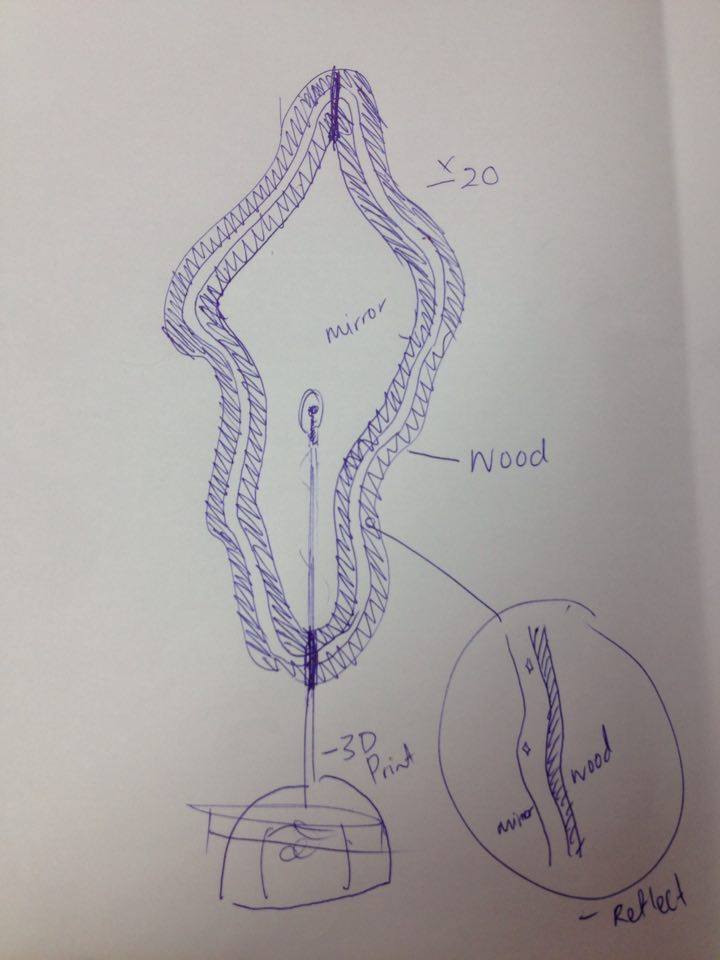 x 20
mirror
Wood
- 3D
Print
mirror
wood
- Reflect